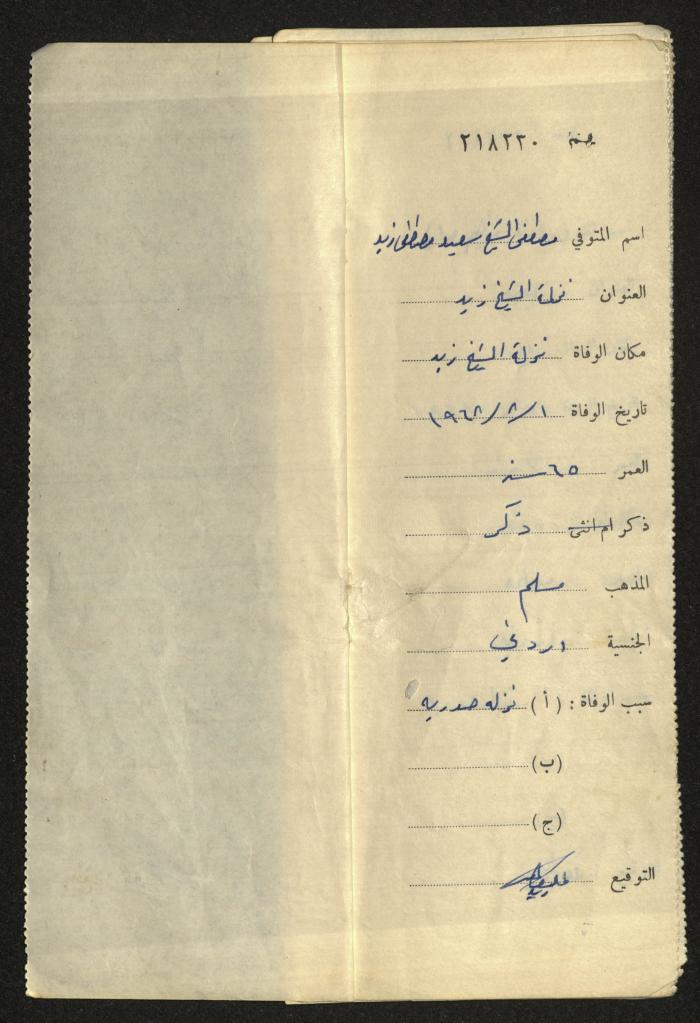 ٢١٨٢٣٠
اسم المتوفي مصطفى الشيخ سعيد مصطفى زيد
العنوان نزلة الشيخ زيد
مكان الوفاة نزلة الشيخ زيد
تاريخ الوفاة ١/٨/١٩٦٨
العمر ٦٥ سنه
ذكر ام انثى ذكر
المذهب مسلم
الجنسية اردني
سبب الوفاة : (أ) نزله صدريه
(ب)
(ج)
التوقيع